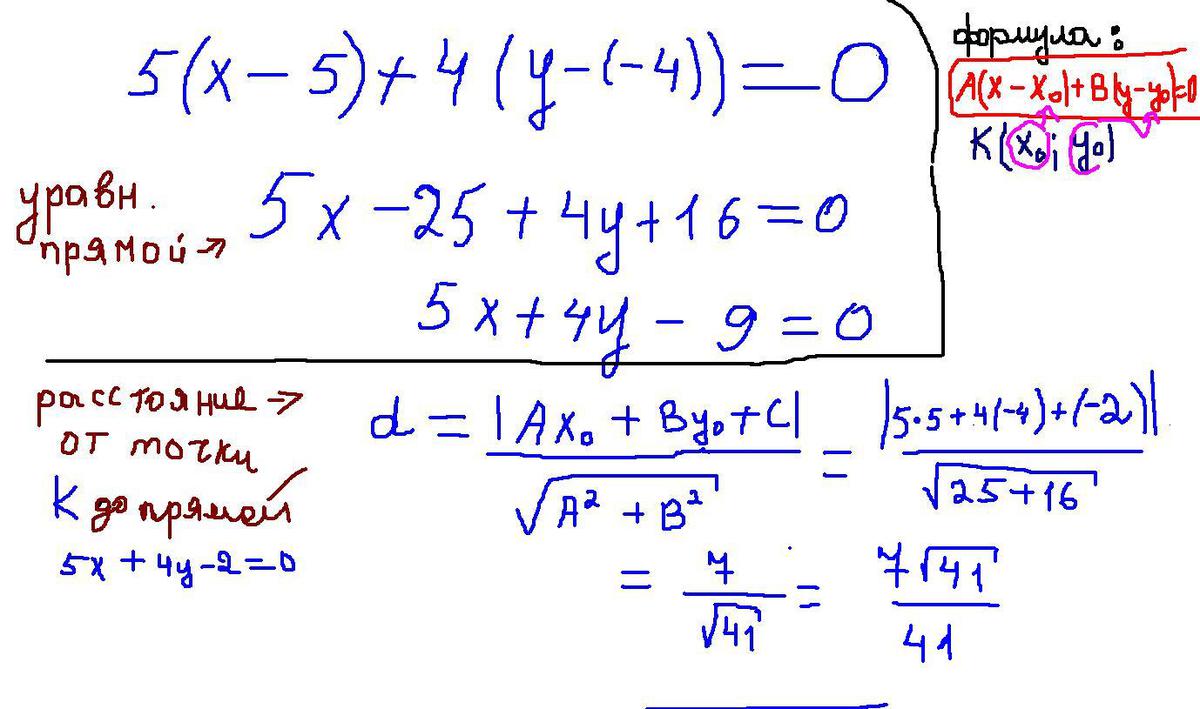 5(x - 5) + 4(y - (-4)) = 0
формула:
A(x - x₀) + B(y - y₀) = 0
K(x₀; y₀)
уравн.
прямой → 5x - 25 + 4y + 16 = 0
5x + 4y - 9 = 0
расстояние →
от точки
K до прямой
5x + 4y - 2 = 0
d = |Ax₀ + By₀ + C| / √(A² + B²) = |5·5 + 4(-4) + (-2)| / √(25 + 16)
= 7 / √41 = 7√41 / 41